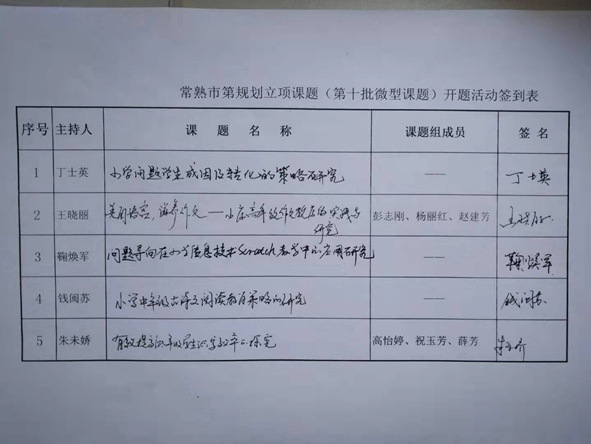 常熟市第规划立项课题（第十批微型课题）开题活动签到表
序号 主持人 课 题 名 称 课题组成员 签 名
1 丁士英 小学问题学生成因及转化的策略研究 —— 丁士英
2 王晓丽 作文——小学高年级作文 的实践与研究 彭志刚、杨丽红、赵建芳
3 鞠焕军 问题导向在小学信息技术Scratch教学中的应用研究 —— 鞠焕军
4 钱闽苏 小学中年级古诗文阅读教学策略的研究 ——
5 朱未娇 有效提高低年级 识字效率的探究 高怡婷、祝玉芳、薛芳